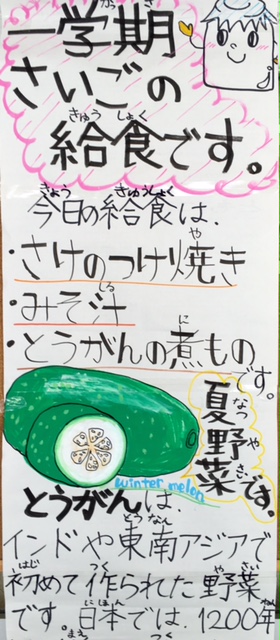 一学期
さいごの
給食です。
今日の給食は、
・さけのつけ焼き
・みそ汁
・とうがんの煮もの
です。
夏野菜です。
winter melon
とうがんは、
インドや東南アジアで
初めて作られた野菜
です。日本では、1200年